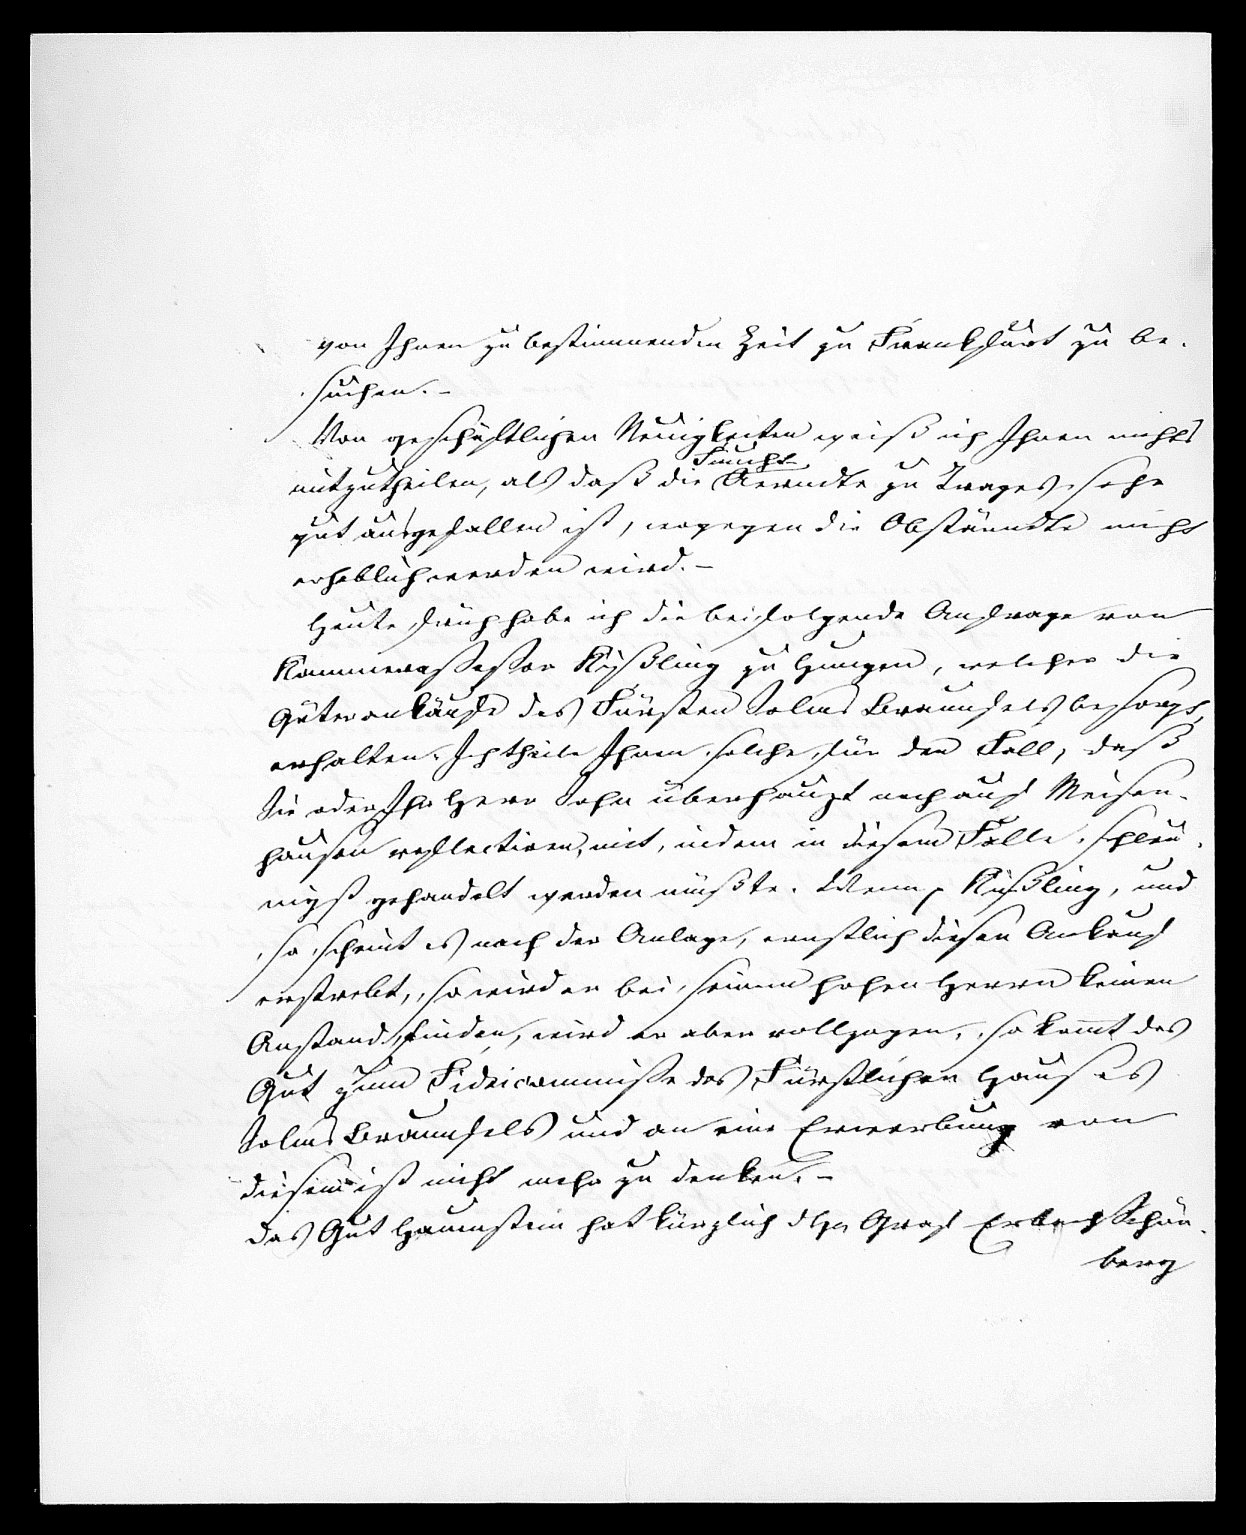 von Ihnen zu bestimmenden Zeit zu Frankfurt zu be-
suchen. –
Von geschäftlichen Neuigkeiten weiß ich Ihnen nichts
mitzutheilen, als daß die Aerndte zu Trages sehr
Frucht
gut ausgefallen ist, wogegen die Obstärndte nicht
erheblich werden wird. –
Heute früh habe ich die beifolgende Anfrage von
Kammerassessor Kyßling zu Hungen, welcher die
Güterankäufe des Fürsten Solms Braunfels besorgt,
erhalten. Ich theile Ihnen solche für den Fall, daß
Sie oder Ihr Herr Sohn überhaupt noch auf Meisen-
hausen reflectiren, mit, indem in diesem Falle schleu-
nigst gehandelt werden müßte. Wenn Kyßling, und
so scheint es nach der Anlage, ernstlich diesen Ankauf
erstrebt, so wird er bei seinem hohen Herrn keinen
Anstand finden, wird er aber vollzogen, so komt das
Gut zum Fideicommisse des Fürstlichen Hauses
Solms Braunfels und an eine Erwerbung von
diesem ist nicht mehr zu denken. –
Das Gut Hauenstein hat kürzlich Graf Erbach Schön-
berg